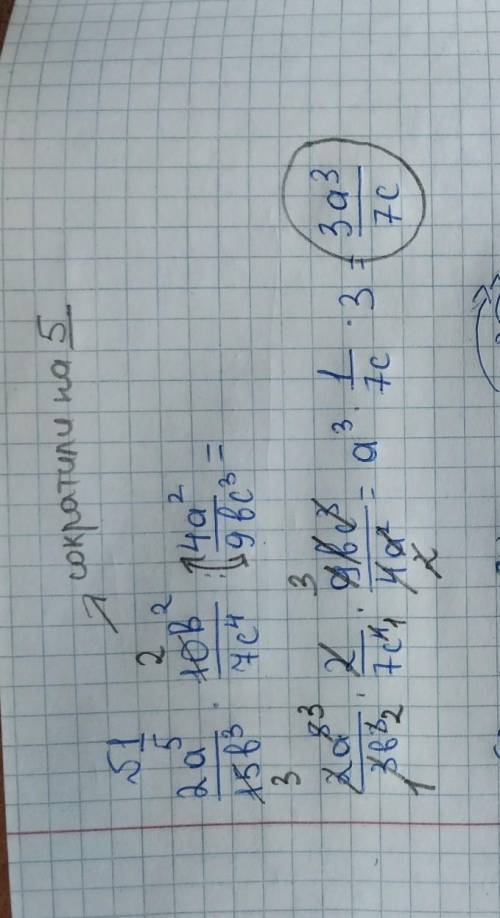 сократили на 5
51
2a⁵/15b³ · 10b²/7c⁴ : 4a²/9bc³ =
2a⁵/3b³ · 2/7c⁴ · 9bc³/4a² = a³ · 1/7c · 3 = 3a³/7c